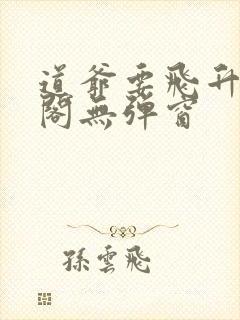 道爺要飛升
閣無彈窗
孫雲飛